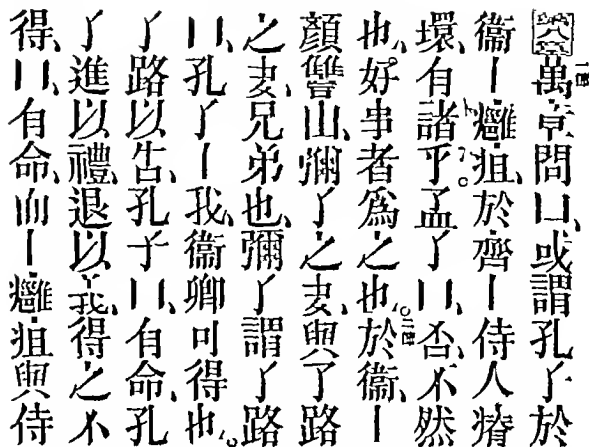 第八章萬章問曰、或謂孔子於
衞主癰疽、於齊主侍人瘠
環、有諸乎。孟子曰、否、不然
也、好事者爲之也。於衞、主
顏讐由、彌子之妻、與子路
之妻、兄弟也、彌子謂子路
曰、孔子主我、衞卿可得也。
子路以告、孔子曰、有命、孔
子進以禮、退以義、得之不
得、曰、有命、而主癰疽與侍